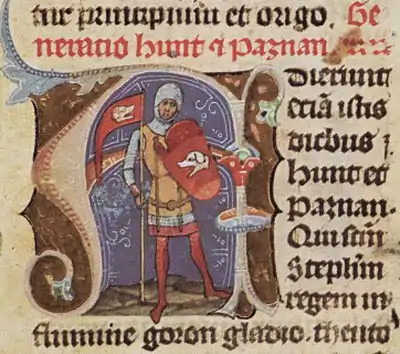 tur principium et origo. Ge
neracio hunt ⁊ paznan.
A Dierunt
eciā istis
diebus
hunt et
paznan.
Qui scm̄
Steph̄m
regem in
flumine goron gladio. theuto